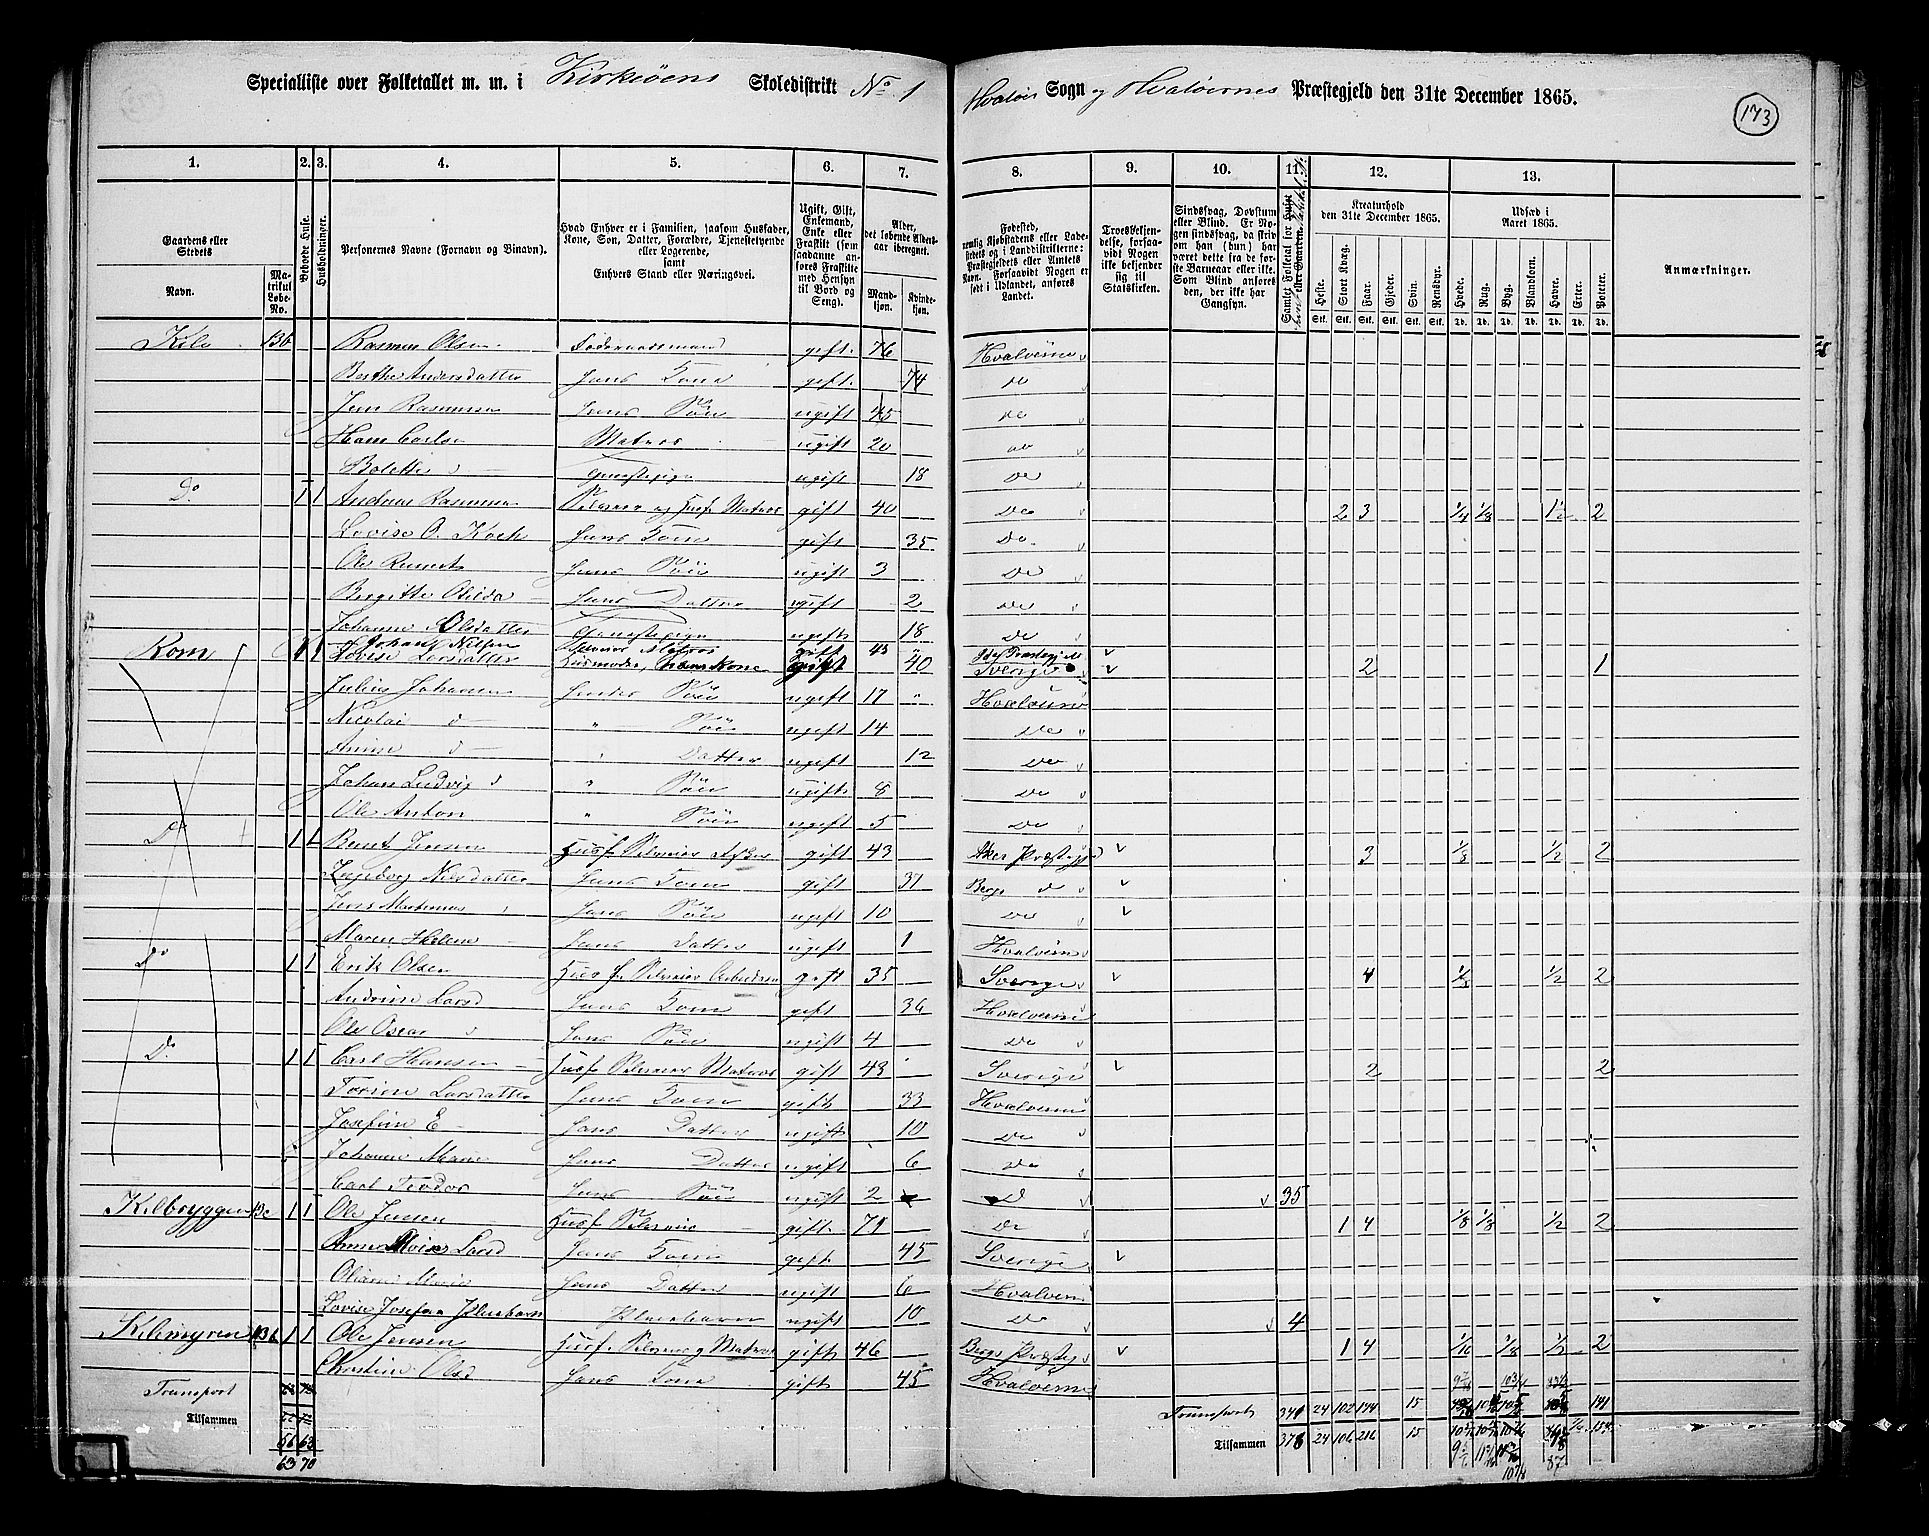 Specialliste over Folketallet m. m. i Kirkeöens Skoledistrikt No 1 Hvalöer Sogn og Hvalöernes Præstegjeld den 31te December 1865.
173
1. 2. 3. 4. 5. 6. 7. 8. 9. 10. 11. 12. 13.
Gaardens eller Stedets
Navn.
Matrikul Løbe-No.
Beboede Huse.
Husholdninger.
Personernes Navne (Fornavn og Binavn).
Hvad Enhver er i Familien, saasom Husfader, Kone, Søn, Datter, Forældre, Tjenestetyende eller Logerende, samt Enhvers Stand eller Næringsvei.
Ugift, Gift, Enkemand, Enke eller Fraskilt (som saadanne anføres Fraskilte med Hensyn til Bord og Seng).
Alder, det løbende Aldersaar iberegnet.
Mandkjøn. Kvindekjøn.
Fødested, nemlig Kjøbstadens eller Ladestedets og i Landdistrikterne: Præstegjeldets eller Amtets Navn. Forsaavidt Nogen er født i Udlandet, anføres Landet.
Troesbekjendelse, forsaavidt Nogen ikke bekjender sig til Statskirken.
Sindssvag, Døvstum eller Blind. Er Nogen sindssvag, da skrives om han (hun) har været dette fra de første Barneaar eller ikke. Som Blind anføres den, der ikke har Gangsyn.
Samlet Folketal for
Kreaturhold den 31te December 1865.
Heste. Stort Kvæg. Faar. Gjeder. Svin. Rensdyr.
Udsæd i Aaret 1865.
Hvede. Rug. Byg. Blandkorn. Havre. Erter. Poteter.
Anmærkninger.
Kile 136 Rasmus Olsen Föderaadsmand gift 76 Hvalöerne
Berthe Andersdatter Hans Kone gift 74 do
Jens Rasmussen Hans Sön ugift 45 do
Hans Carlsen Matros ugift 20 do
Bolette d Tjenestepige ugift 18 do
Do 1 1 Andreas Rasmussen Selveier og Husf. Matros gift 40 do 2 3 1/4 1/8 1 1/2 2
Lovise O. Koch Hans Kone gift 35 do
Ole Reinert Hans Sön ugift 3 do
Birgitte Otilda Hans Datter ugift 2 do
Johanne Olsdatter Tjenestepige ugift 18 do
Kom 1 1 Johan Nilsen Selveier Matros gift 43 Ids Præstegj
Lovise Larsdatter Husmoder, hans Kone gift 40 Sverige 2 1
Julius Johansen Hendes Sön ugift 17 Hvalöerne
Nicolai d " Sön ugift 14 do
Annie d " Datter ugift 12 do
Johan Ludvig d " Sön ugift 8 do
Ole Anton " Sön ugift 5 do
Do 1 1 Bernt Jensen Husf. Selveier Fisker gift 43 Aker Præstegj 3 1/8 1/2 2
Ingeborg Nilsdatter Hans Kone gift 37 Berge d
Jens Martinus Hans Sön ugift 10 do
Maren Helene Hans Datter ugift 1 Hvalöerne
Do 1 1 Erik Olsen Husf. Selveier Arbeidsm gift 35 Sverige 4 1/8 1/2 2
Andrine Larsd Hans Kone gift 36 Hvalöerne
Ole Oscar Hans Sön ugift 4 do
Do 1 1 Carl Hansen Husf Selveier Matros gift 43 Sverige 2 2
Torine Larsdatter Hans Kone gift 33 Hvalöerne
Josefine E Hans Datter ugift 10 do
Johanne Marie Hans Datter ugift 6 do
Carl Teodor Hans Sön ugift 2 d 35
Kilbryggen 136 1 1 Ole Jensen Husf. Selveier gift 71 do 1 4 1/8 1/8 1/2 2
Anne Larsd Hans Kone gift 45 Sverige
Oliane Marie Hans Datter ugift 6 Hvalöerne
Lovise Josefine Pleiebarn Pleiebarn ugift 10 do 4
Kilemyren 136 1 1 Ole Jensen Husf. Selveier og Matros gift 46 Berge Præstegj 1 4 1/16 1/8 1/2 2
Christine Olsd Hans Kone gift 45 Hvalöerne
Transport Transport 24 102 15 141
Tilsammen 56 63 Tilsammen 376 24 106 216 15 154
63 70